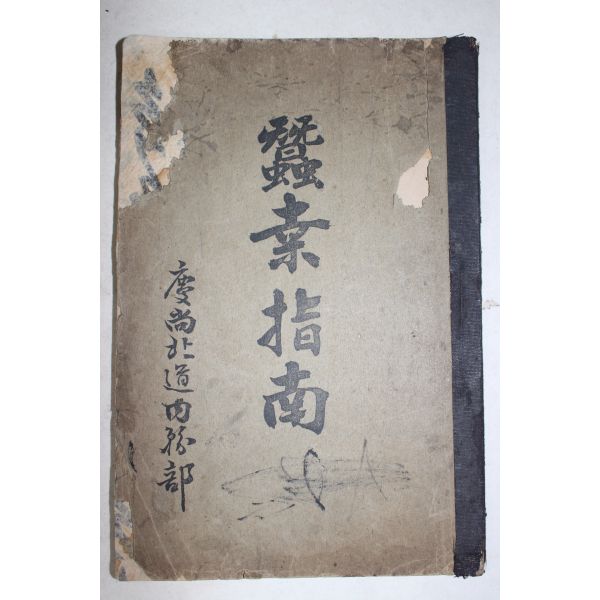 蠶桒指南
慶尚北道内務部